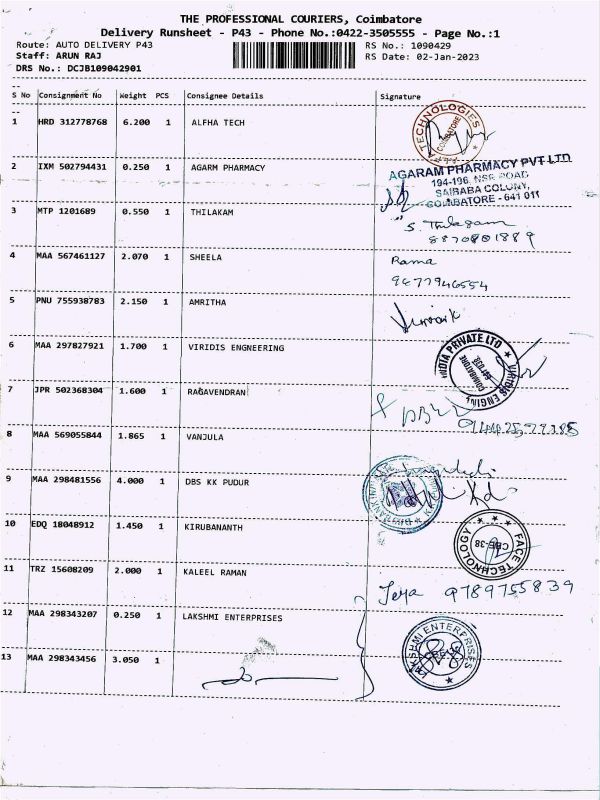 THE PROFESSIONAL COURIERS, Coimbatore
Delivery Runsheet - P43 - Phone No.:0422-3505555 - Page No.:1
Route: AUTO DELIVERY P43 RS No.: 1090429
Staff: ARUN RAJ RS Date: 02-Jan-2023
DRS No.: DCJB109042901
S No Consignment No Weight PCS Consignee Details Signature
1 HRD 312778768 6.200 1 ALFHA TECH
TECHNOLOGIES COIMBATORE
2 IXM 502794431 0.250 1 AGARM PHARMACY
AGARAM PHARMACY PVT LTD
194-196, NSR ROAD
SAIBABA COLONY,
COIMBATORE - 641 011
3 MTP 1201689 0.550 1 THILAKAM
S. Thilagam
8870801889
4 MAA 567461127 2.070 1 SHEELA
Rama
9677946554
5 PNU 755938783 2.150 1 AMRITHA
6 MAA 297827921 1.700 1 VIRIDIS ENGNEERING
INDIA PRIVATE LTD
COIMBATORE
7 JPR 502368304 1.600 1 RAGAVENDRAN
8 MAA 569055844 1.865 1 VANJULA
9 MAA 298481556 4.000 1 DBS KK PUDUR
10 EDQ 18048912 1.450 1 KIRUBANANTH
FACE TECHNOLOGY
CBE-38
11 TRZ 15608209 2.000 1 KALEEL RAMAN
Jeya 9789755839
12 MAA 298343207 0.250 1 LAKSHMI ENTERPRISES
LAKSHMI ENTERPRISES
13 MAA 298343456 3.050 1